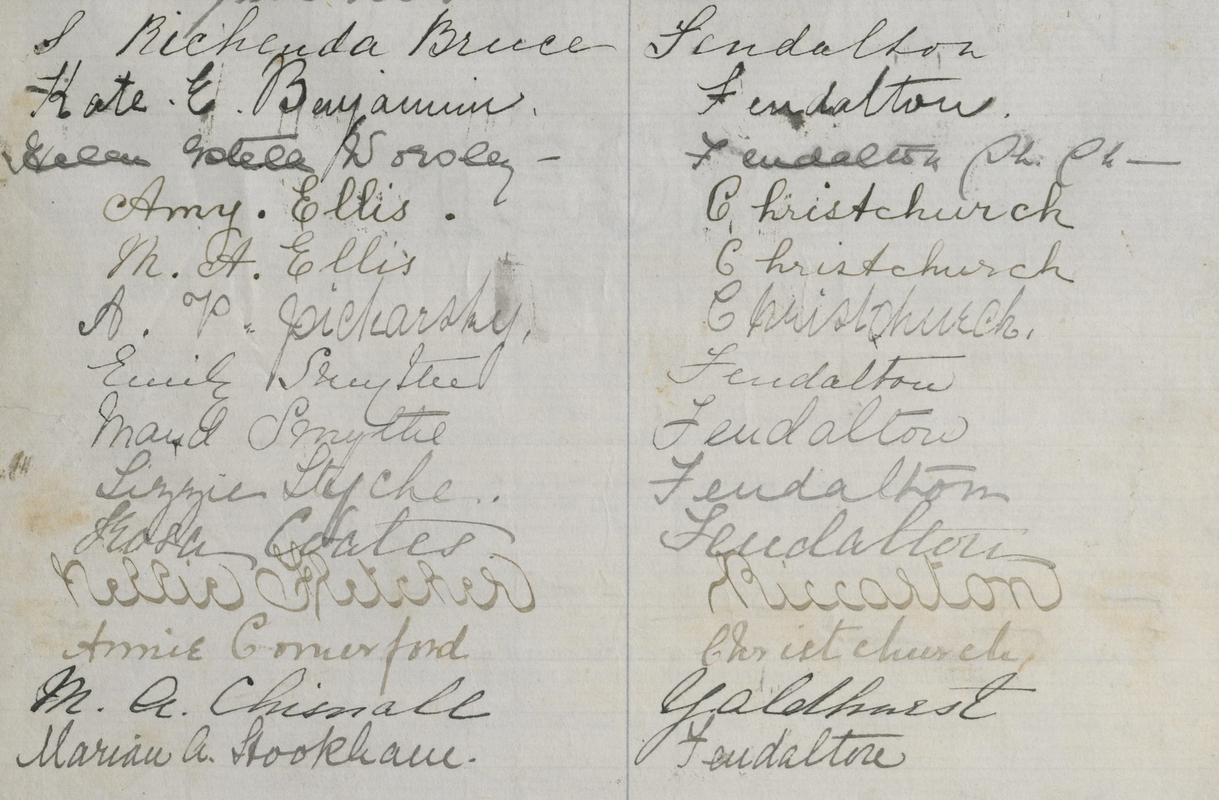 S Richenda Bruce Fendalton
Kate. E. Benjamin. Fendalton.
Helen Estella Worsley - Fendalton Ch. Ch -
Amy. Ellis. Christchurch
M. A. Ellis Christchurch
A. P. Pickarsky. Christchurch.
Emily Smythe Fendalton
Maud Smythe Fendalton
Lizzie Styche. Fendalton
Rosa Coates Fendalton
Nellie Fletcher Riccarton
Annie Comerford Christchurch,
M. A. Chisnall Yaldhurst
Marian A. Stookham. Fendalton